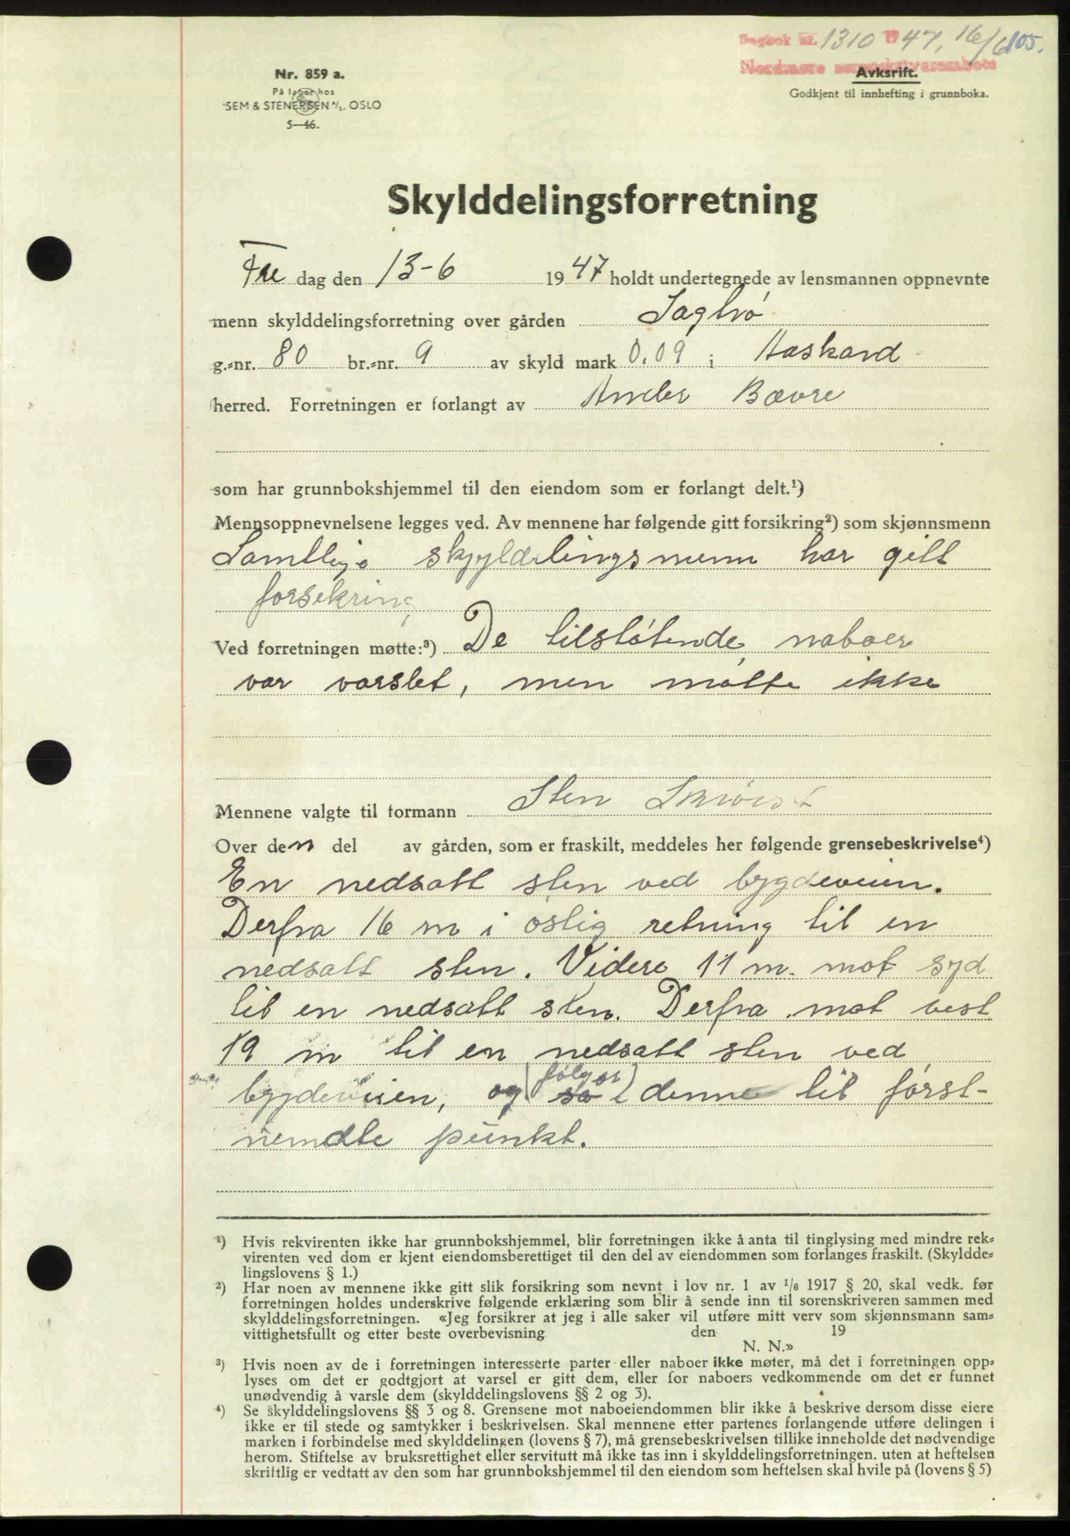 Dagbok nr. 1310 1947, 16/6 105.
Nordmøre sorenskriverembete
Nr. 859 a.
På lager hos
SEM & STENERSEN A/S, OSLO
5—46.
Avskrift.
Godkjent til innhefting i grunnboka.
Skylddelingsforretning
Fre dag den 13-6 1947 holdt undertegnede av lensmannen oppnevnte
menn skylddelingsforretning over gården Sagbrø
g.=nr. 80 br.=nr. 9 av skyld mark 0.09 i Aaskard
herred. Forretningen er forlangt av Bævre
som har grunnbokshjemmel til den eiendom som er forlangt delt.¹)
Mennsoppnevnelsene legges ved. Av mennene har følgende gitt forsikring²) som skjønnsmenn
Samtlige skylddelingsmenn har gitt
forsikring
Ved forretningen møtte:³) De tilstøtende naboer
var varslet, men møtte ikke
Mennene valgte til formann Sten
Over den del av gården, som er fraskilt, meddeles her følgende grensebeskrivelse⁴)
En nedsatt sten ved bygdeveien.
Derfra 16 m i østlig retning til en
nedsatt sten. Videre 11 m. mot syd
til en nedsatt sten. Derfra mot vest
19 m til en nedsatt sten ved
følger
bygdeveien, og så denne til først-
nemdte punkt.
¹) Hvis rekvirenten ikke har grunnbokshjemmel, blir forretningen ikke å anta til tinglysing med mindre rek=
virenten ved dom er kjent eiendomsberettiget til den del av eiendommen som forlanges fraskilt. (Skyldde=
lingslovens § 1.)
²) Har noen av mennene ikke gitt slik forsikring som nevnt i lov nr. 1 av 1/6 1917 § 20, skal vedk. før
forretningen holdes underskrive følgende erklæring som blir å sende inn til sorenskriveren sammen med
skylddelingsforretningen. «Jeg forsikrer at jeg i alle saker vil utføre mitt verv som skjønnsmann sam=
vittighetsfullt og etter beste overbevisning. den 19
N. N.»
³) Hvis noen av de i forretningen interesserte parter eller naboer ikke møter, må det i forretningen opp=
lyses om det er godtgjort at varsel er gitt dem, eller for naboers vedkommende om det er funnet
unødvendig å varsle dem (skylddelingslovens §§ 2 og 3).
⁴) Se skylddelingslovens §§ 3 og 8. Grensene mot naboeiendommen blir ikke å beskrive dersom disse eiere
ikke er til stede og samtykker i beskrivelsen. Skal mennene etter partenes forlangende utføre delingen i
marken i forbindelse med skylddelingen (lovens § 7), må grensebeskrivelsen tillike inneholde det nødvendige
herom. Stiftelse av bruksrettighet eller servitutt må ikke tas inn i skylddelingsforretningen. uten at heftelsen
skriftlig er vedtatt av den som har grunnbokshjemmel til den eiendom som heftelsen skal hvile på (lovens § 5)